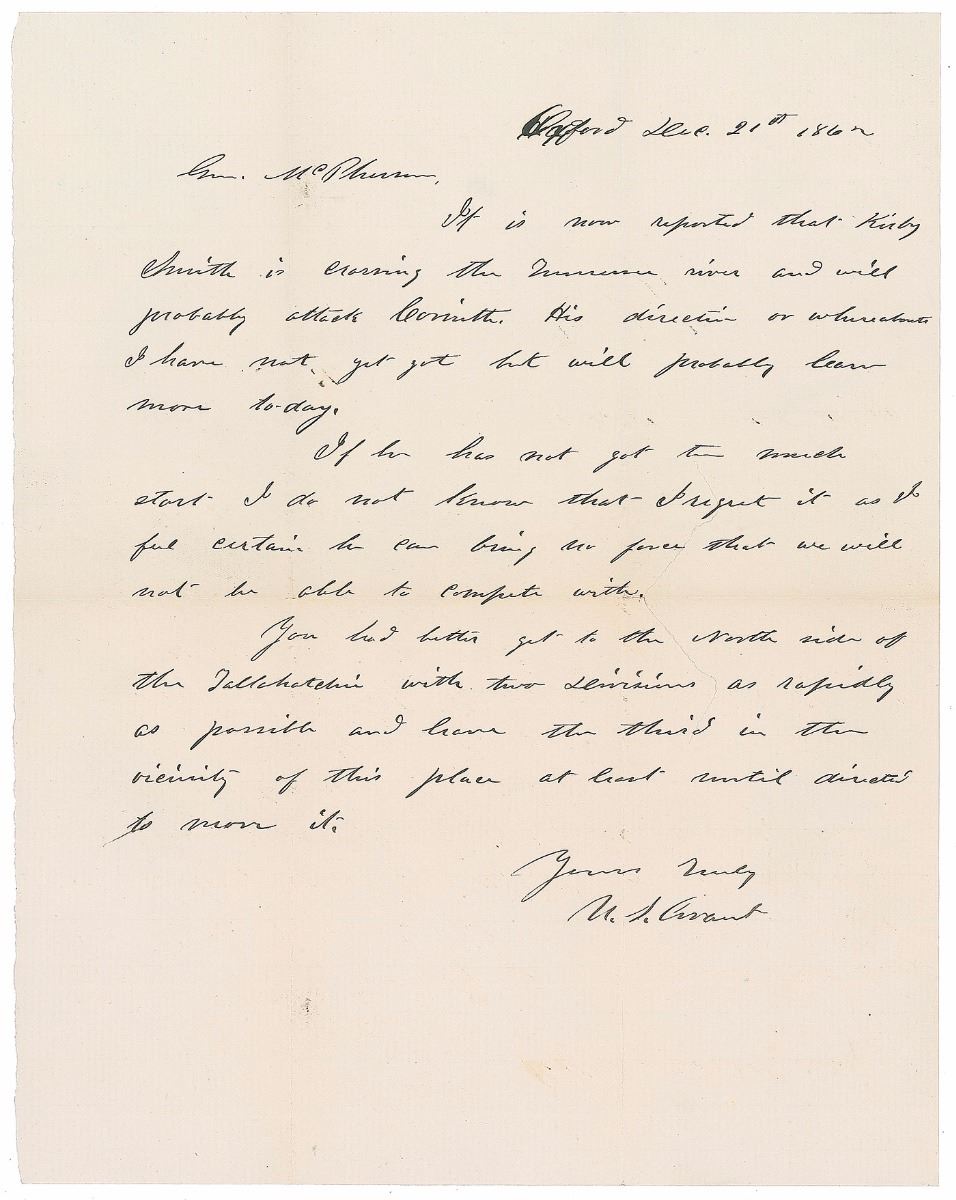 Oxford Dec. 21st 1862
Gen. McPherson,
It is now reported that Kirby
Smith is crossing the Tennessee river and will
probably attack Corinth. His direction or whereabouts
I have not yet got but will probably learn
more to-day.
If he has not got too much
start I do not know that I regret it as I
feel certain he can bring no force that we will
not be able to compete with.
You had better get to the North side of
the Tallahatchie with two Divisions as rapidly
as possible and leave the third in the
vicinity of this place at least until directed
to move it.
Yours Truly
U. S. Grant